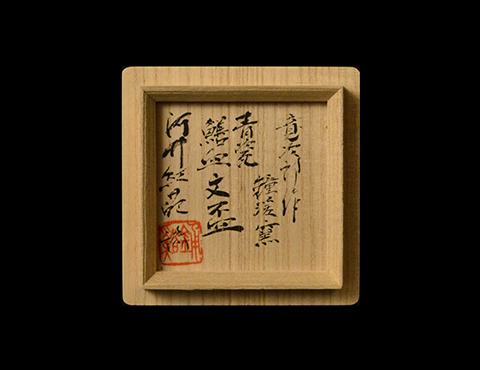 寛次郎作
鐘渓窯
青瓷
鱔血文盃
河井紅葩